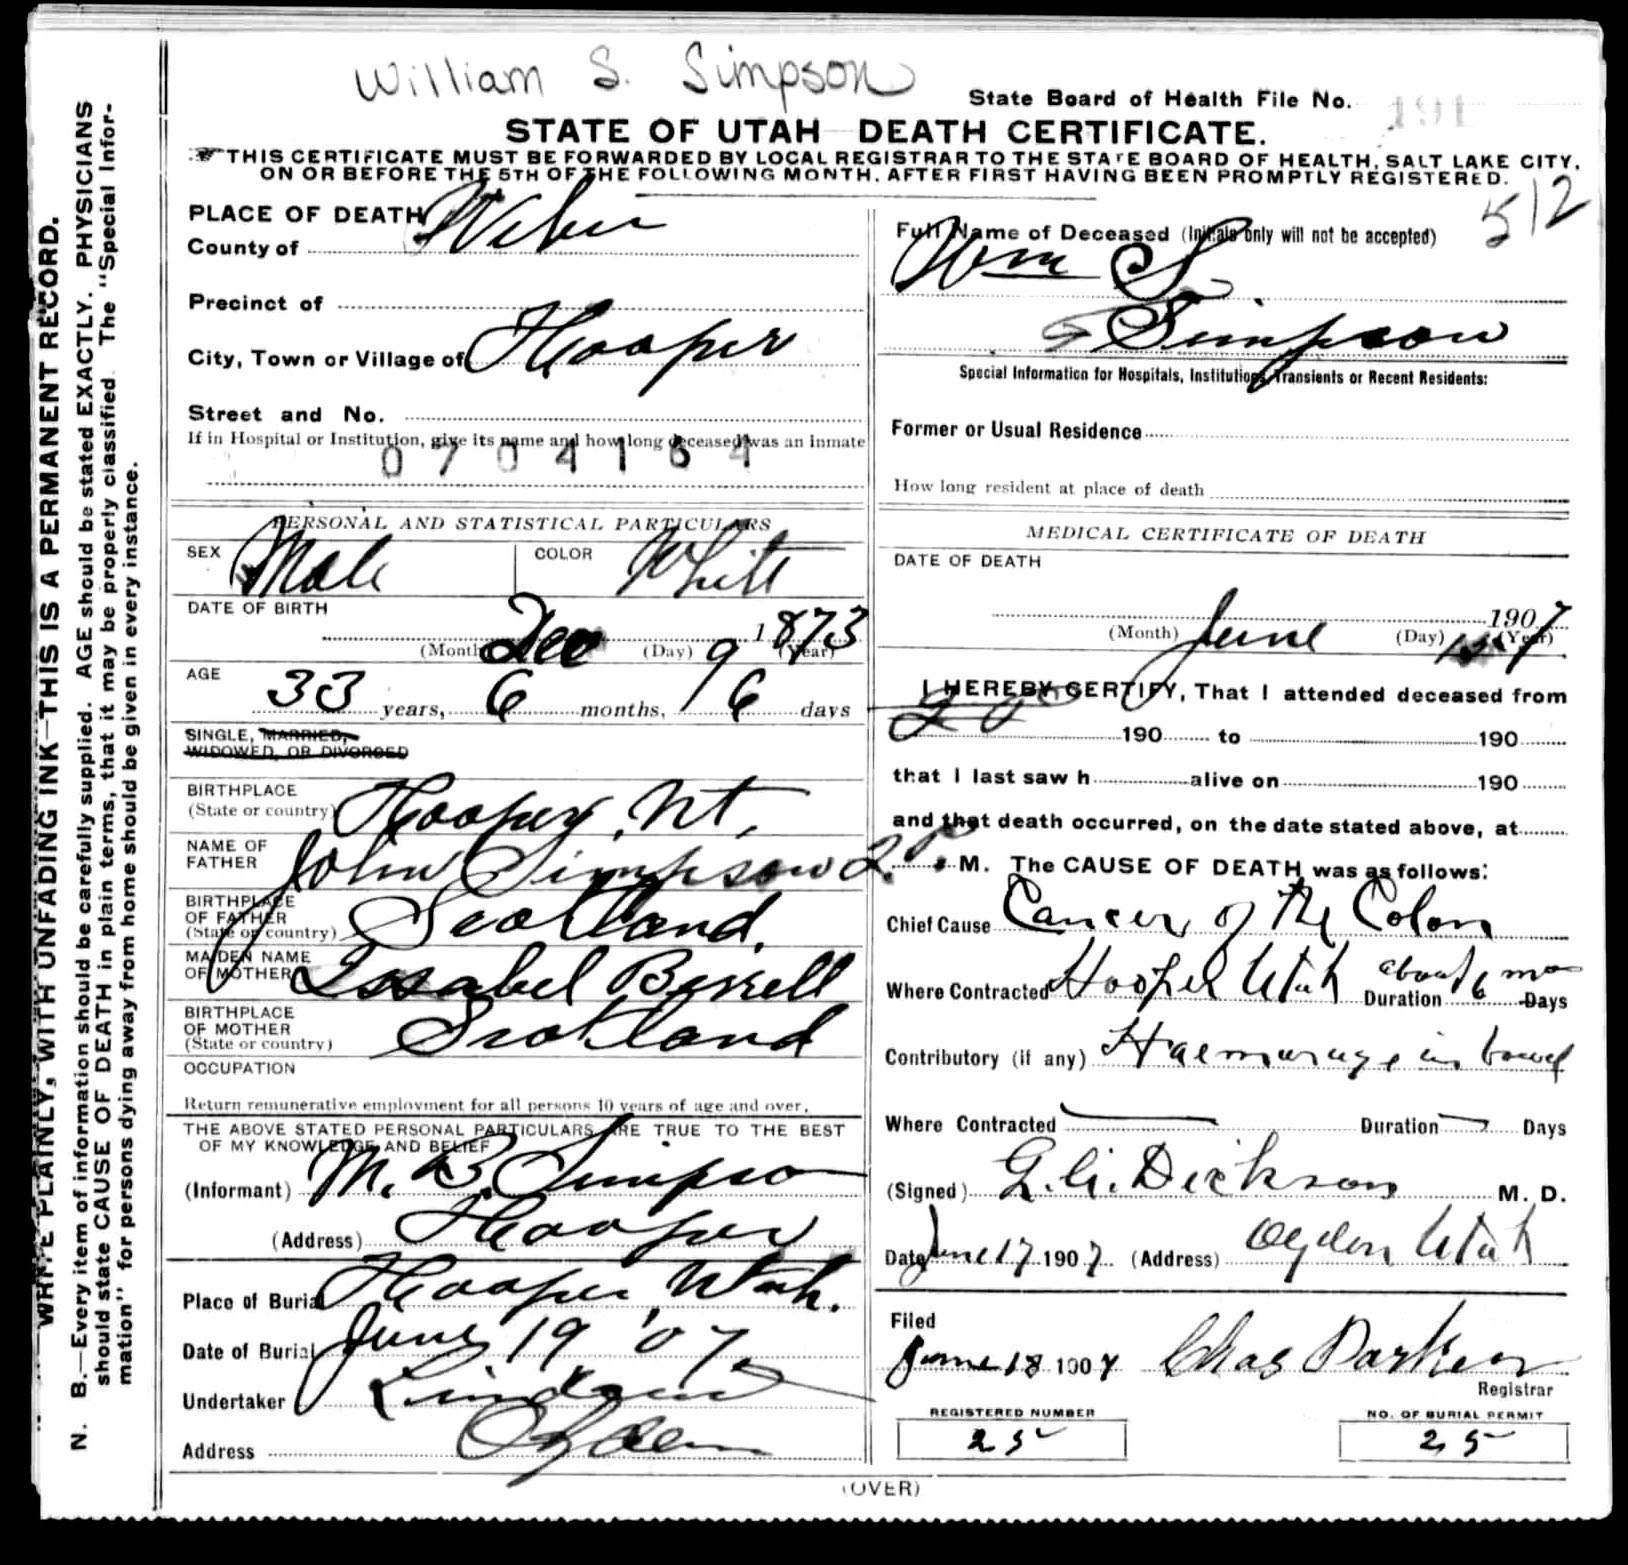 William S. Simpson
State Board of Health File No. 191
STATE OF UTAH DEATH CERTIFICATE.
THIS CERTIFICATE MUST BE FORWARDED BY LOCAL REGISTRAR TO THE STATE BOARD OF HEALTH, SALT LAKE CITY,
ON OR BEFORE THE 5TH OF THE FOLLOWING MONTH, AFTER FIRST HAVING BEEN PROMPTLY REGISTERED.
512
WRITE PLAINLY, WITH UNFADING INK—THIS IS A PERMANENT RECORD.
N. B.—Every item of information should be carefully supplied. AGE should be stated EXACTLY. PHYSICIANS
should state CAUSE OF DEATH in plain terms, that it may be properly classified. The "Special Infor-
mation" for persons dying away from home should be given in every instance.
PLACE OF DEATH
County of Weber
Precinct of
City, Town or Village of Hooper
Street and No.
If in Hospital or Institution, give its name and how long deceased was an inmate
0704164
PERSONAL AND STATISTICAL PARTICULARS
SEX Male COLOR White
DATE OF BIRTH
(Month) Dec (Day) 9 1873 (Year)
AGE
33 years, 6 months, 6 days
SINGLE, MARRIED,
WIDOWED, OR DIVORCED
BIRTHPLACE
(State or country) Hooper, Ut,
NAME OF
FATHER John Simpson
BIRTHPLACE
OF FATHER
(State or country) Scotland.
MAIDEN NAME
OF MOTHER Issabel Berrell
BIRTHPLACE
OF MOTHER
(State or country) Scotland
OCCUPATION
Return remunerative employment for all persons 10 years of age and over.
THE ABOVE STATED PERSONAL PARTICULARS ARE TRUE TO THE BEST
OF MY KNOWLEDGE AND BELIEF
(Informant) M. B. Simpson
(Address) Hooper
Place of Burial Hooper, Utah.
Date of Burial June 19 '07
Undertaker
Address Ogden
Full Name of Deceased (Initials only will not be accepted)
Wm S
Simpson
Special Information for Hospitals, Institutions, Transients or Recent Residents:
Former or Usual Residence
How long resident at place of death
MEDICAL CERTIFICATE OF DEATH
DATE OF DEATH
1907
(Month) June (Day) (Year)
I HEREBY CERTIFY, That I attended deceased from
190 to 190
that I last saw h alive on 190
and that death occurred, on the date stated above, at
2 P. M. The CAUSE OF DEATH was as follows:
Chief Cause Cancer of the Colon
Where Contracted Hooper Utah Duration about 6 mo Days
Contributory (if any) Haemorrage in bowel
Where Contracted Duration Days
(Signed) Dickson M. D.
Date June 17 1907 (Address) Ogden Utah
Filed
June 18 1907 Chas Parker
Registrar
REGISTERED NUMBER
25
NO. OF BURIAL PERMIT
25
(OVER)